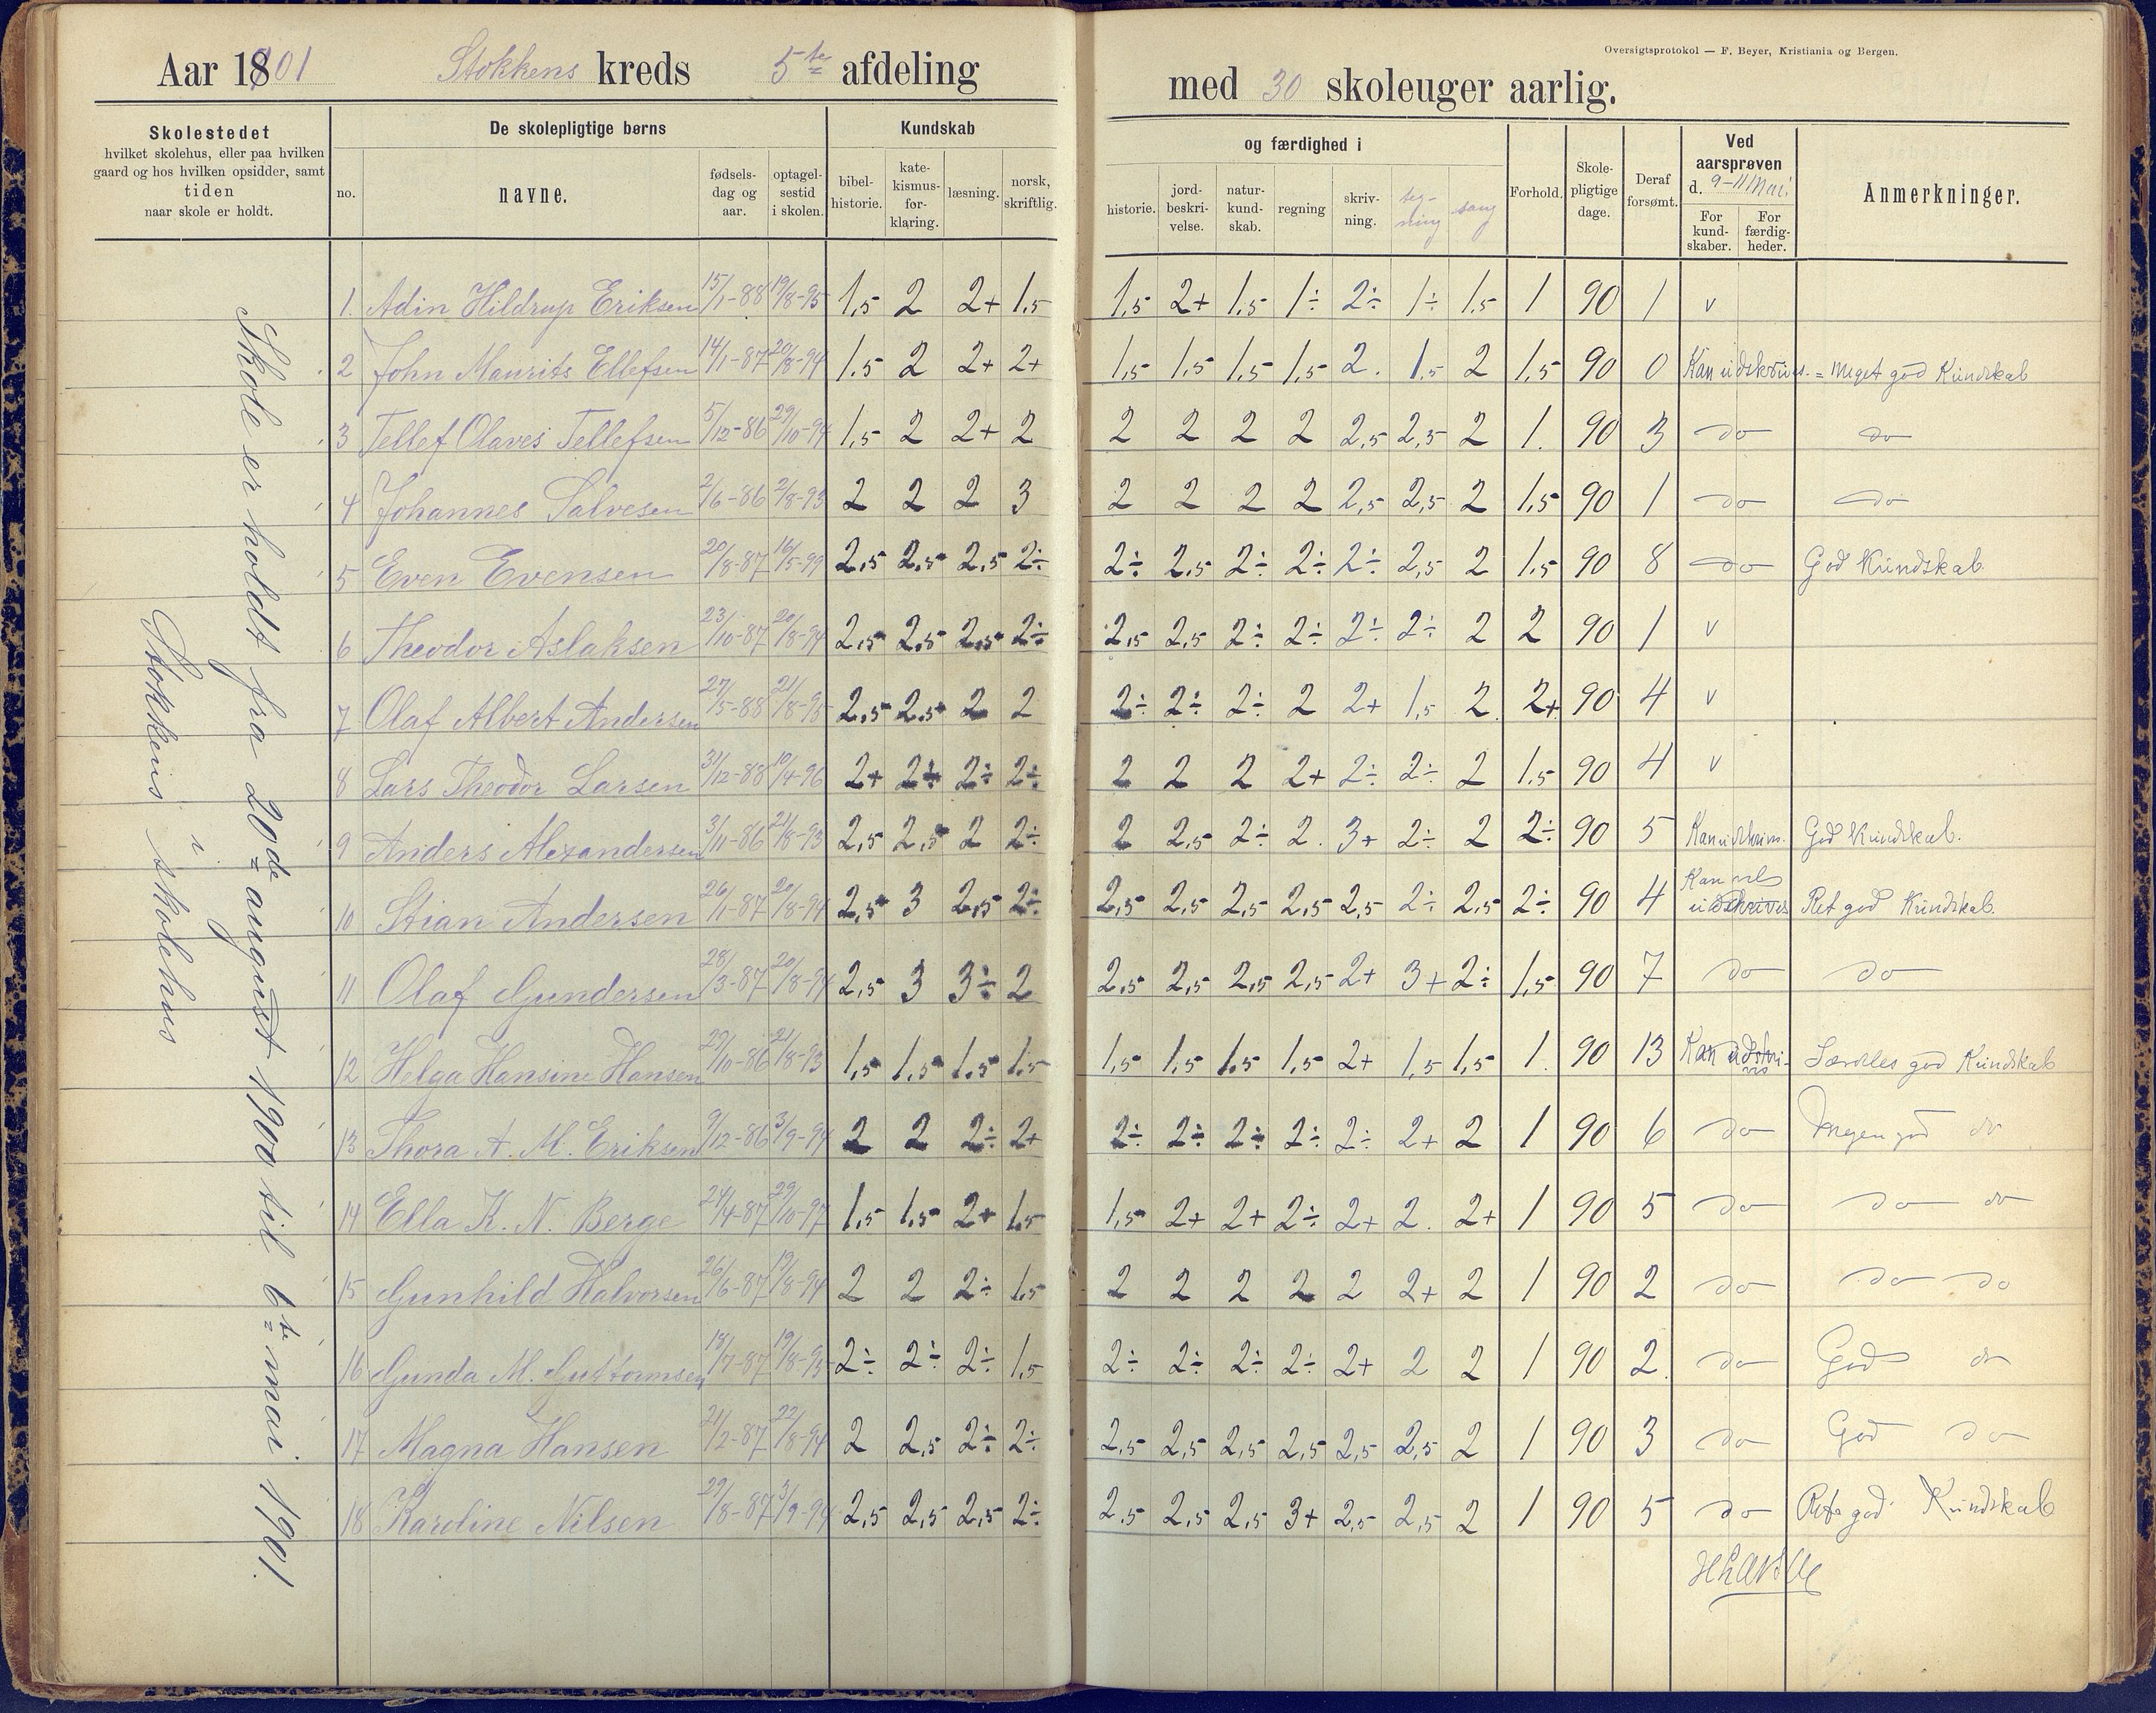 Aar 1901 Stokkens kreds 5te afdeling
med 30 skoleuger aarlig.
Oversigtsprotokol — F. Beyer, Kristiania og Bergen.
Skolestedet
hvilket skolehus, eller paa hvilken
gaard og hos hvilken opsidder, samt
tiden
naar skole er holdt.
De skolepligtige børns
no.
navne.
fødsels-
dag og
aar.
optagel-
sestid
i skolen.
Kundskab
bibel-
historie.
kate-
kismus-
før-
klaring.
læsning.
norsk,
skriftlig.
og færdighed i
historie.
jord-
beskri-
velse.
natur-
kund-
skab.
regning
skriv-
ning.
teg-
ning
sang
Forhold.
Skole-
pligtige
dage.
Deraf
forsømt.
Ved
aarsprøven
d. 9-11 Mai.
For
kund-
skaber.
For
færdig-
heder.
Anmerkninger.
Skole er holdt fra 20de august 1900 til 6te mai 1901.
i
Stokkens skolehus
1. Adin Hildrup Eriksen 15/1-88 19/8-95 1,5 2 2+ 1,5 1,5 2+ 1,5 1÷ 2÷ 1÷ 1,5 1 90 1 v
2 John Maurits Ellefsen 14/1-87 20/8-94 1,5 2 2+ 2+ 1,5 1,5 1,5 1,5 2. 1,5 2 1,5 90 0 Kan udskrives. = Meget god Kundskab
3 Tellef Olaves Tellefsen 5/12-86 29/10-94 1,5 2 2+ 2 2 2 2 2 2,5 2,5 2 1. 90 3 do do
4 Johannes Salvesen 2/6-86 2/8-93 2 2 2 3 2 2 2 2 2,5 2,5 2 1,5 90 1 do do
5 Even Evensen 20/8-87 16/5-99 2,5 2,5 2,5 2÷ 2÷ 2,5 2÷ 2÷ 2÷ 2,5 2 1,5 90 8 do God Kundskab
6 Theodor Aslaksen 23/10-87 20/8-94 2,5 2,5 2,5 2÷ 2,5 2,5 2÷ 2÷ 2÷ 2÷ 2 2 90 1 v
7 Olaf Albert Andersen 27/5-88 21/8-95 2,5 2,5 2 2 2÷ 2÷ 2÷ 2 2+ 1,5 2 2+ 90 4 v
8 Lars Theodor Larsen 31/12-88 10/4-96 2+ 2÷ 2÷ 2÷ 2 2 2 2+ 2÷ 2÷ 2 1,5 90 4 v
9 Anders Alexandersen 3/11-86 21/8-93 2,5 2,5 2 2÷ 2 2,5 2÷ 2. 3+ 2÷ 2 2÷ 90 5 Kan udskrives. God Kundskab.
10 Stian Andersen 26/1-87 20/8-94 2,5 3 2,5 2÷ 2,5 2,5 2,5 2,5 2,5 2÷ 2,5 2÷ 90 4 Kan vel udskrives Ret god Kundskab.
11 Olaf Gundersen 28/3-87 20/8-94 2,5 3 3÷ 2 2,5 2,5 2,5 2,5 2+ 3+ 2÷ 1,5 90 7 do do
12 Helga Hansine Hansen 29/10-86 21/8-93 1,5 1,5 1,5 1,5 1,5 1,5 1,5 1,5 2+ 1,5 1,5 1. 90 13 Kan udskrives Særdeles god Kundskab
13 Thora A. M. Eriksen 9/12-86 3/9-94 2 2 2÷ 2+ 2÷ 2÷ 2÷ 2÷ 2÷ 2+ 2 1 90 6 do Megen god do
14 Ella K. N. Berge 24/4-87 29/10-97 1,5 1,5 2+ 1,5 1,5 2+ 2+ 2÷ 2+ 2. 2+ 1 90 5 do do do
15 Gunhild Halvorsen 26/6-87 19/8-94 2 2 2÷ 1,5 2 2 2 2 2 2+ 2 1 90 2 do do do
16 Gunda M. Guttormsen 18/7-87 19/8-95 2÷ 2÷ 2÷ 1,5 2÷ 2÷ 2÷ 2÷ 2+ 2 2 1 90 2. do God do
17 Magna Hansen 21/2-87 22/8-94 2 2,5 2÷ 2÷ 2,5 2,5 2,5 2,5 2,5 2,5 2 1 90 3 do God do
18 Karoline Nilsen 29/8-87 3/9-94 2,5 2,5 2,5 2÷ 2,5 2,5 2,5 3+ 2,5 2,5 2 1 90 5 do Ret god Kundskab